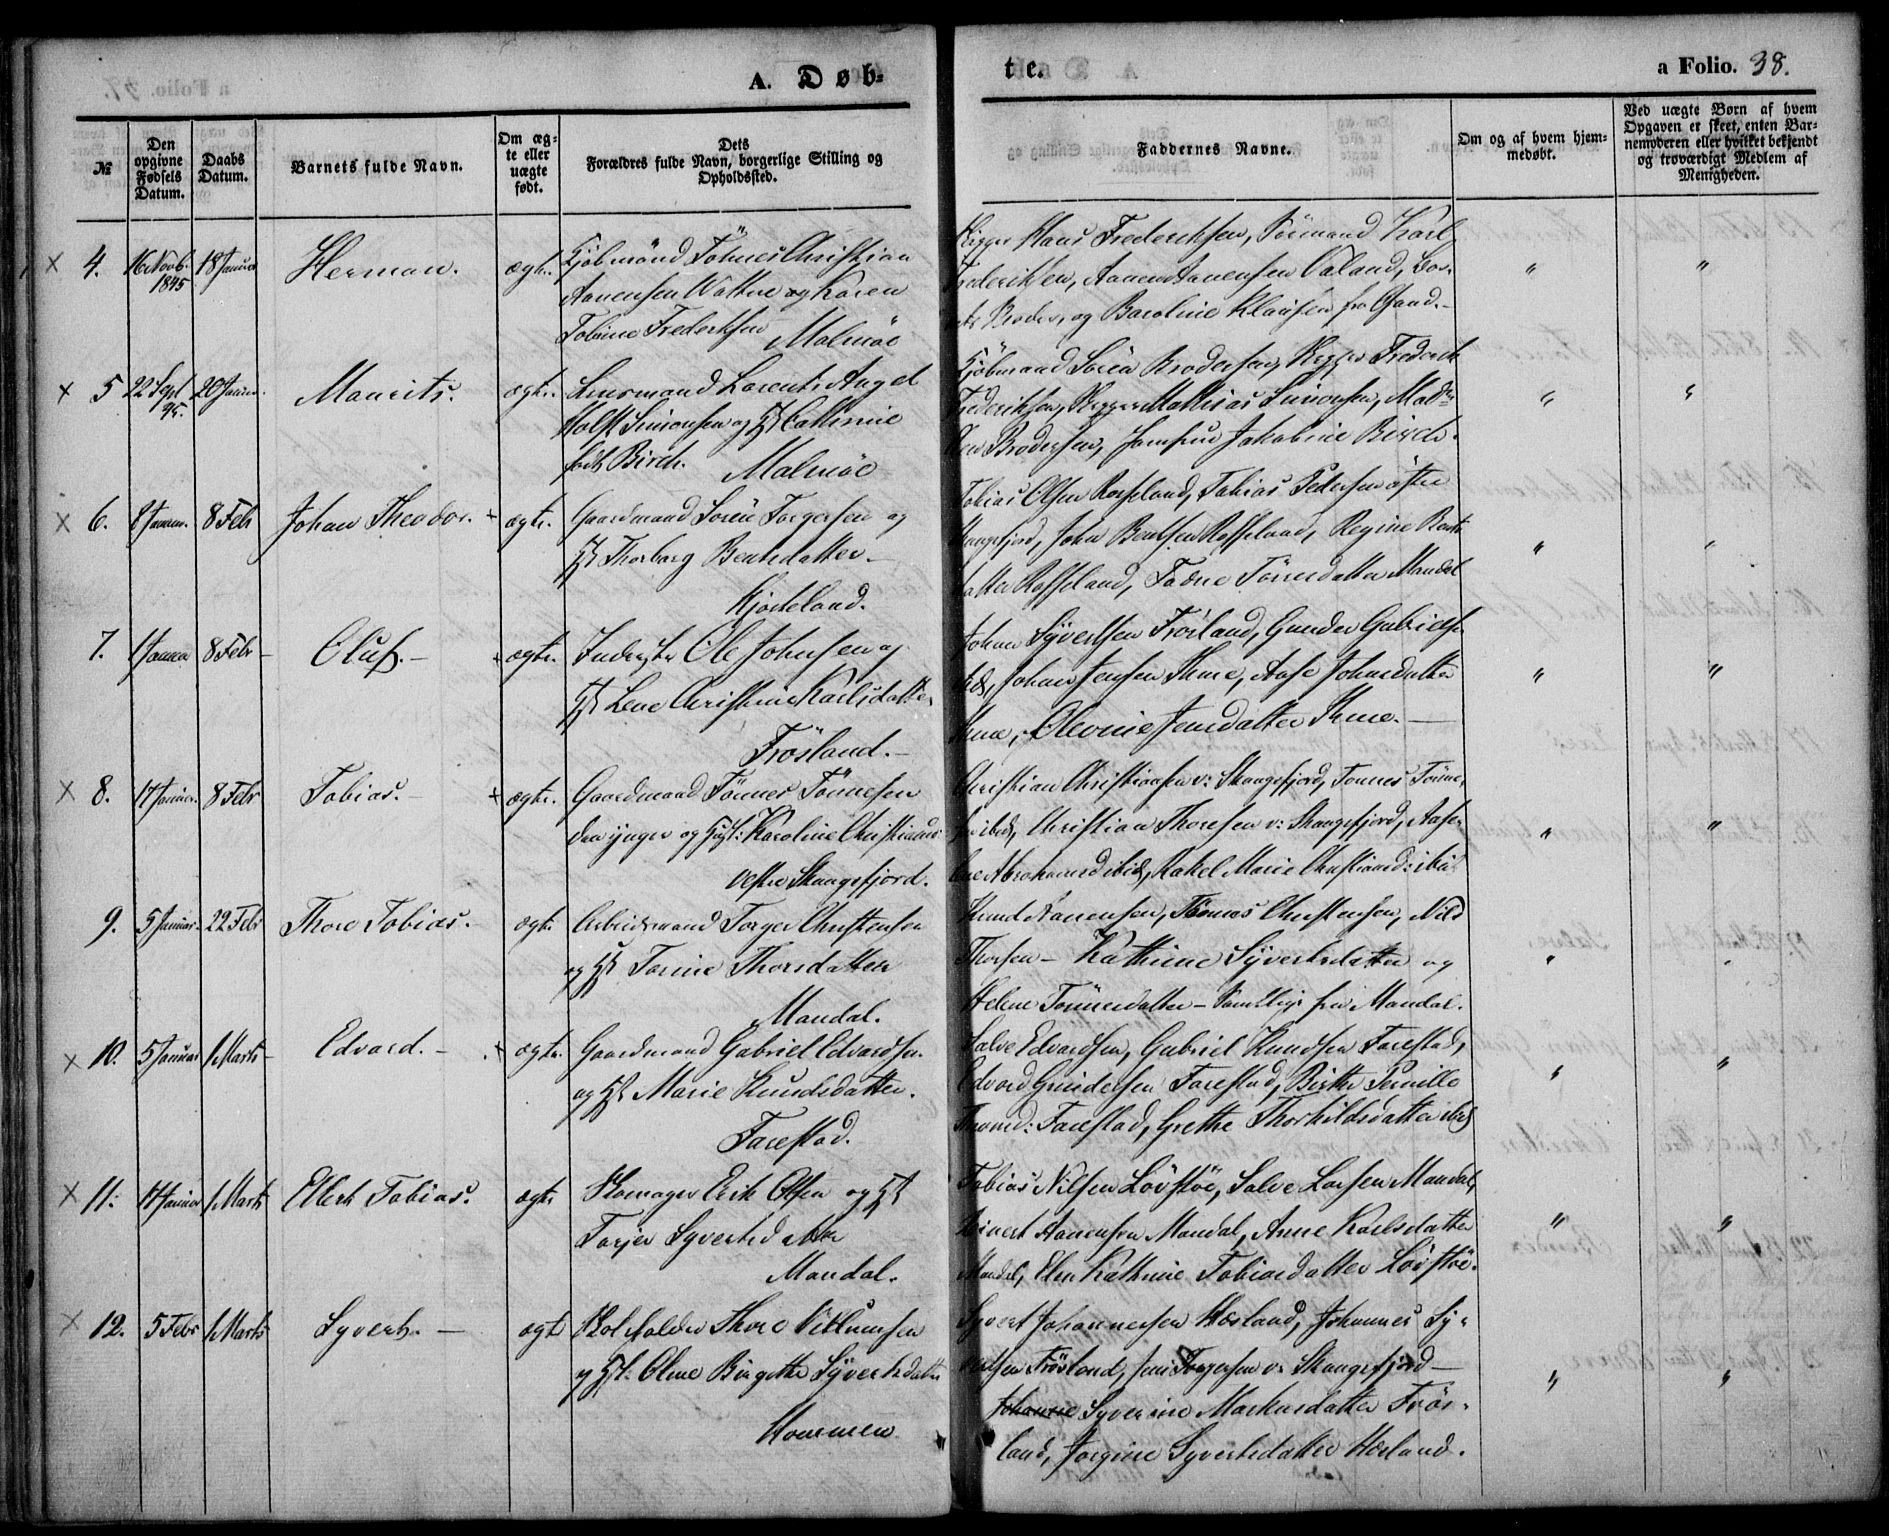 A. Døb-
te.
a Folio. 38.
№
Den opgivne Fødsels Datum.
Daabs Datum.
Barnets fulde Navn.
Om æg-te eller uægte født.
Dets
Forældres fulde Navn, borgerlige Stilling og
Opholdssted.
Faddernes Navne.
Om og af hvem hjem-
medøbt.
Ved uægte Børn af hvem
Opgaven er skeet, enten Bar-
nemoderen eller hvilket bekjendt
og troværdigt Medlem af
Menigheden.
4. 16 Novb. 1845 18 Januar Herman. ægte. Kjøbmand Tönnes Christian
Aanensen Wattne og Karen
Tobine Frederiksen Malmöe
Rigger Hans Frederiksen, Sömand Karl
Frederiksen, Aanen Aanensen Valand, Bar-
nets Broder, og Baroline Klausen fra
5 22 Sept 45. 20 Januar. Maurits. ægte. Lensmand Lorents Angel
Holst Simonsen og H Cathrine
födt Birch. Malmöe
Kjöbmand Sören Brodersen, Rigger Frederik
Frederiksen, Rigger Mathias Simonsen, Mad.
Brodersen, Jomfrue Jakobine Birch.
6. 8 Januar. 8 Feb Johan Theodor. ægte. Gaardmand Sören Torgersen og
H Thorborg Bentsdatter
Kjödeland.
Tobias Olsen Rosseland, Tobias Pedersen östre
Skaugsfjord, John Bentsen Rosseland, Regine Bents
datter Rosseland, Tönnesdatter Mandal
7. 1 Januar 8 Febr Oluf. ægte. Inderste Ole Johnsen og
H Lene Christine Karlsdatter
Fröisland.
Johan Syvertsen Fröisland, Gunder Gabriels.
ibid, Johan Jensen Ime, Aase Johnsdatter
Ime, Olevine Jensdatter Ime.
8. 17 Januar. 8 Febr Tobias. ægte. Gaardmand Tönnes Tönnesen
den yngre og Hust: Karoline Christians
Vestre Skaugsfjord.
Christian Christiansen v: Skaugsfjord, Tonnes Tönne-
sen ibid, Christian Thorsen v: Skaugsfjord, Aase-
line Abrahamsd ibid, Rakel Marie Christiansd: ibid
9. 5 Januar. 22 Febr Thore Tobias. ægte. Arbeidsmand Torger Christensen
og H Tomine Thorsdatter
Mandal.
Knud Aanensen, Tönnes Christensen, Nils
Thorsen Kathrine Syvertsdatter og
Helene Tönnesdatter Samtlige fra Mandal.
10. 5 Januar 1 Marts Edvard. ægte. Gaardmand Gabriel Edvardsen
og H Marie Knudsdatter.
Farestad.
Salve Edvardsen, Gabriel Knudsen Farestad,
Edvard Gundersen Farestad, Birthe Pernille
Farestad, Grethe Thorkildsdatter ibid
11. 14 Januar 1 Marts Ellert Tobias. ægte. Skomager Erik Olsen og H
Torjer Syvertsdatter
Mandal.
Tobias Nilsen Lövstöe, Salve Larsen Mandal,
Reinert Aanensen Mandal, Anne Karlsdatter
Mandal, Elen Kathrine Tobiasdatter Lövstöe.
12. 5 Febr 1 Marts Syvert. ægte Skoleholder Thore Villumsen
og H. Olene Birgitte Syvertsdatter
Hommen
Syvert Johannesen Hæsland, Johannes Sy-
vertsen Fröisland, Jens Torgersen v: Skaugsfjord
Johanne Syverine Markusdatter Fröis-
land, Jorgine Syvertsdatter Hæsland.